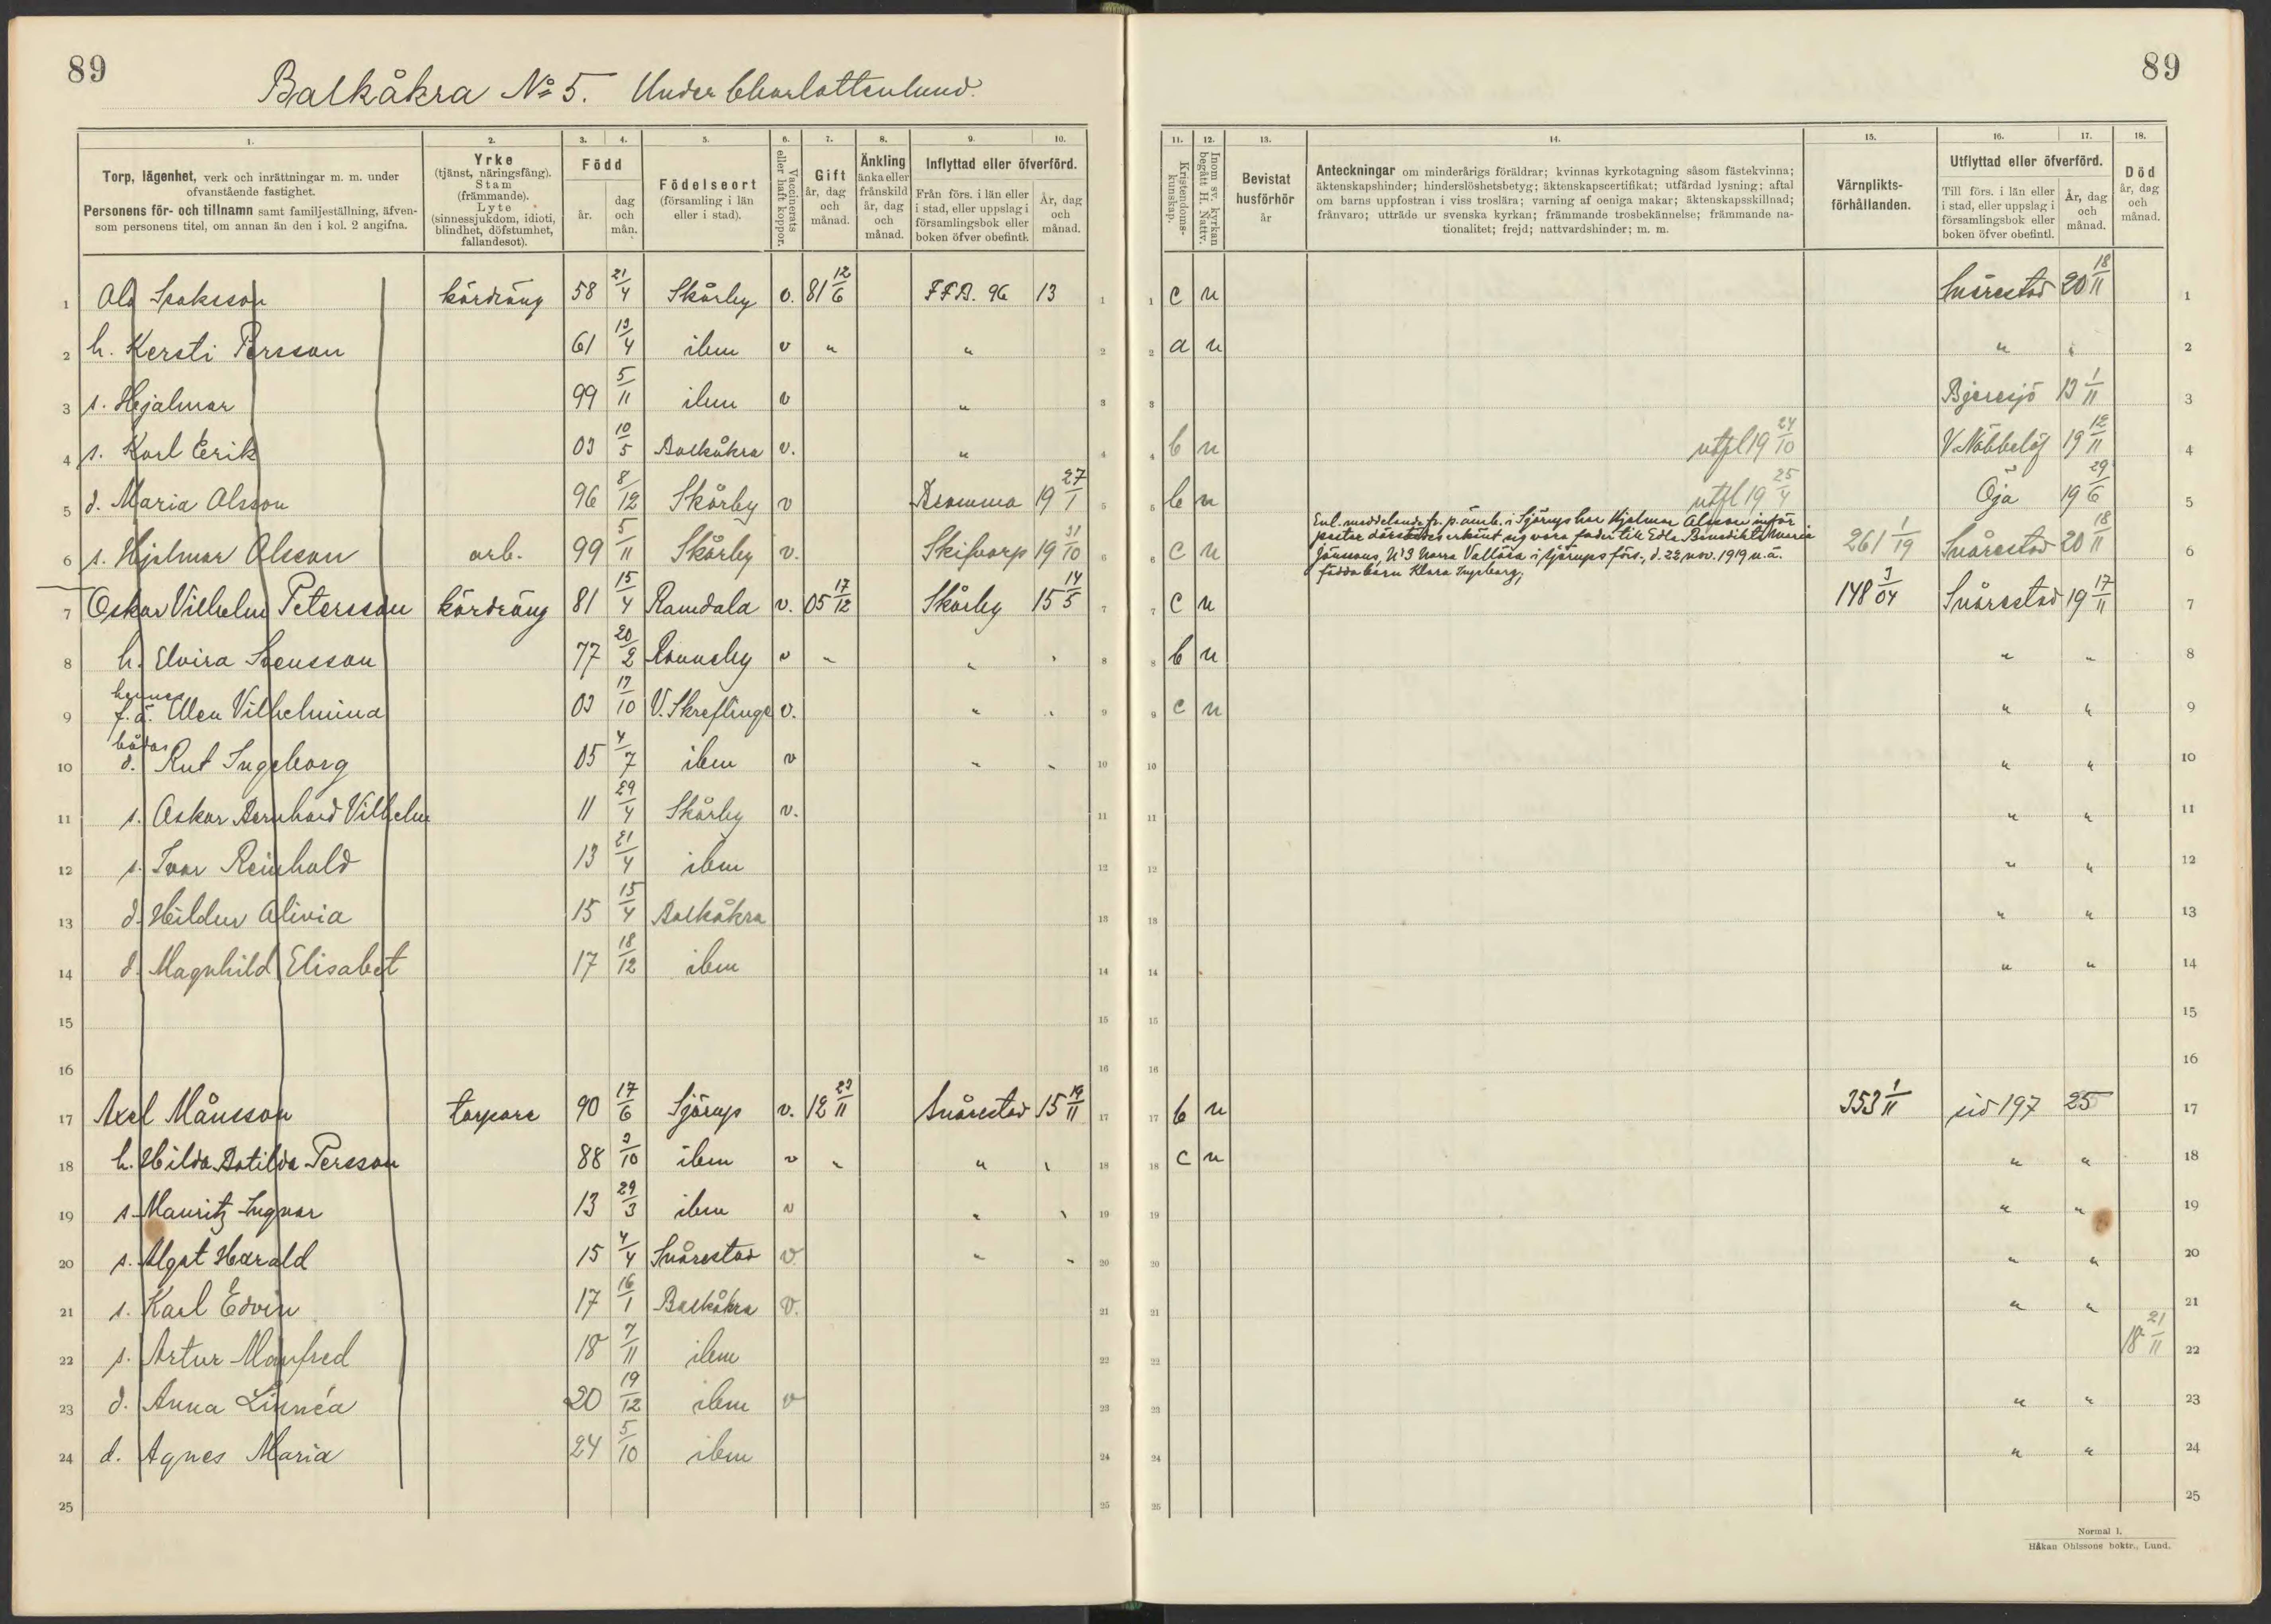 89
Balkåkra No 5. Under Charlottenlund.
1. 2. 3. 4. 5. 6. 7. 8. 9. 10.
Torp, lägenhet, verk och inrättningar m. m. under ofvanstående fastighet.
Personens för- och tillnamn samt familjeställning, äfvensom personens titel, om annan än den i kol. 2 angifna.
Yrke (tjänst, näringsfång). Stam (främmande). Lyte (sinnessjukdom, idioti, blindhet, döfstumhet, fallandesot).
Född
år.
dag och mån.
Födelseort (församling i län eller i stad).
Vaccinerats eller haft koppor.
Gift år, dag och månad.
Änkling änka eller frånskild år, dag och månad.
Inflyttad eller öfverförd.
Från förs. i län eller i stad, eller uppslag i församlingsbok eller boken öfver obefintl.
År, dag och månad.
1 Ola Isaksson kördräng 58 21/4 Skårby v. 81 12/6 F.F.B. 96 13 1
2 h. Kersti Persson 61 13/4 ibm v " " 2
3 s. Hjalmar 99 5/11 ibm v " 3
4 s. Karl Erik 03 10/5 Balkåkra v. " 4
5 d. Maria Olsson 96 8/12 Skårby v Bromma 19 27/1 5
6 s. Hjalmar Olsson arb. 99 5/11 Skårby v. Skifvarp 19 31/10 6
7 Oskar Vilhelm Petersson kördräng 81 15/4 Ramdala v. 05 17/12 Skårby 15 14/5 7
8 h. Elvira Svensson 77 20/2 Ronneby v " " " 8
hennes
9 f. ä. Ellen Vilhelmina 03 17/10 V. Skreflinge v. " " 9
bådas
10 d. Rut Ingeborg 05 4/7 ibm v " " 10
11 s. Oskar Bernhard Vilhelm 11 29/4 Skårby v. 11
12 s. Ivar Reinhold 13 21/4 ibm 12
13 d. Hildur Olivia 15 15/4 Balkåkra 13
14 d. Magnhild Elisabet 17 18/12 ibm 14
15 15
16 16
17 Axel Månsson torpare 90 17/6 Sjörup v. 12 23/11 Snårestad 15 19/11 17
18 h. Hilda Botilda Persson 88 3/10 ibm v " " " 18
19 s. Mauritz Ingvar 13 29/3 ibm v " " 19
20 s. Algot Harald 15 4/4 Snårestad v. " " 20
21 s. Karl Edvin 17 16/1 Balkåkra v. 21
22 s. Artur Manfred 18 7/11 ibm 22
23 d. Anna Linnéa 20 19/12 ibm v 23
24 d. Agnes Maria 24 5/10 ibm 24
25 25
89
11. 12. 13. 14. 15. 16. 17. 18.
Kristendomskunskap.
Inom sv. kyrkan begått H. Nattv.
Bevistat husförhör år
Anteckningar om minderårigs föräldrar; kvinnas kyrkotagning såsom fästekvinna;
äktenskapshinder; hinderslöshetsbetyg; äktenskapscertifikat; utfärdad lysning; aftal
om barns uppfostran i viss troslära; varning af oeniga makar; äktenskapsskillnad;
frånvaro; utträde ur svenska kyrkan; främmande trosbekännelse; främmande nationalitet; frejd; nattvardshinder; m. m.
Värnpliktsförhållanden.
Utflyttad eller öfverförd.
Till förs. i län eller i stad, eller uppslag i församlingsbok eller boken öfver obefintl.
År, dag och månad.
Död år, dag och månad.
1 c n Snårestad 20 18/11 1
2 a n " " 2
3 Bjeresjö 13 1/11 3
4 b n utfl 19 24/10 V. Nöbbelöf 19 12/11 4
5 b n utfl 19 25/4 Öja 19 29/6 5
Enl. meddelande fr. p. ämb. i Sjörup har Hjalmar Olsson inför
pastor därstädes erkänt sig vara fader till Edla Benedikta Maria
6 c n Jönssons, N:3 Norra Vallösa i Sjörups förs., d. 22 nov. 1919 u. ä. 261 1/19 Snårestad 20 18/11 6
födda barn Klara Ingeborg;
7 c n 148 3/04 Snårestad 19 17/11 7
8 b n " " 8
9 c n " " 9
10 " " 10
11 " " 11
12 " " 12
13 " " 13
14 " " 14
15 15
16 16
17 b n 353 1/11 sid 197 25 17
18 c n " " 18
19 " " 19
20 " " 20
21 " " 21
22 18 21/11 22
23 " " 23
24 " " 24
25 25
Normal 1.
Håkan Ohlssons boktr., Lund.